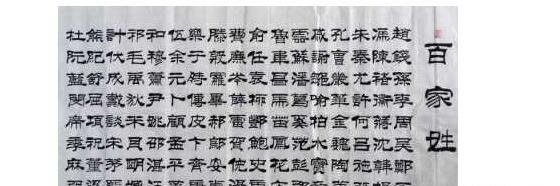 百家姓
趙錢孫李周吳鄭
馮陳褚衛蔣沈韓
朱秦尤許何呂施
孔曹嚴華金魏陶
戚謝鄒喻柏水竇
雲蘇潘葛奚范彭
魯韋昌馬苗鳳花
俞任袁柳酆鮑史
費廉岑薛雷賀倪
滕殷羅畢郝鄔安
樂于時傅皮卞齊
伍余元卜顧孟平
和穆蕭尹姚邵湛
祁毛禹狄米貝明
計伏成戴談宋茅
熊紀舒屈項祝董
杜阮藍閔席季麻